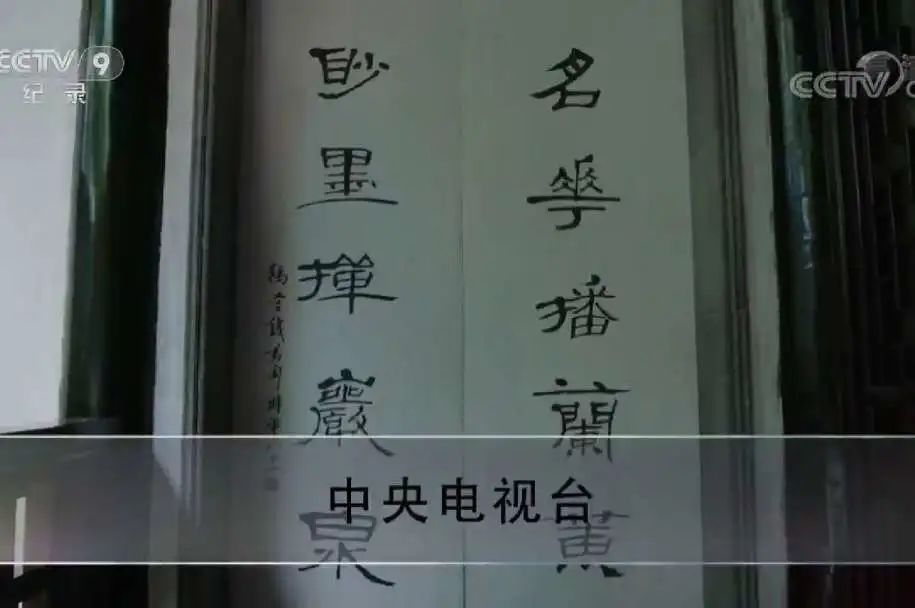 CCTV 9
纪录
CCTV
名華播蘭黄
眇墨揮巖泉
中央电视台